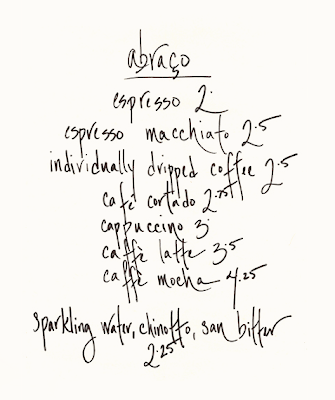 abraço
espresso 2.
espresso macchiato 2.5
individually dripped coffee 2.5
café cortado 2.75
cappuccino 3
caffè latte 3.5
caffè mocha 4.25
sparkling water, chinotto, san bitter
2.25